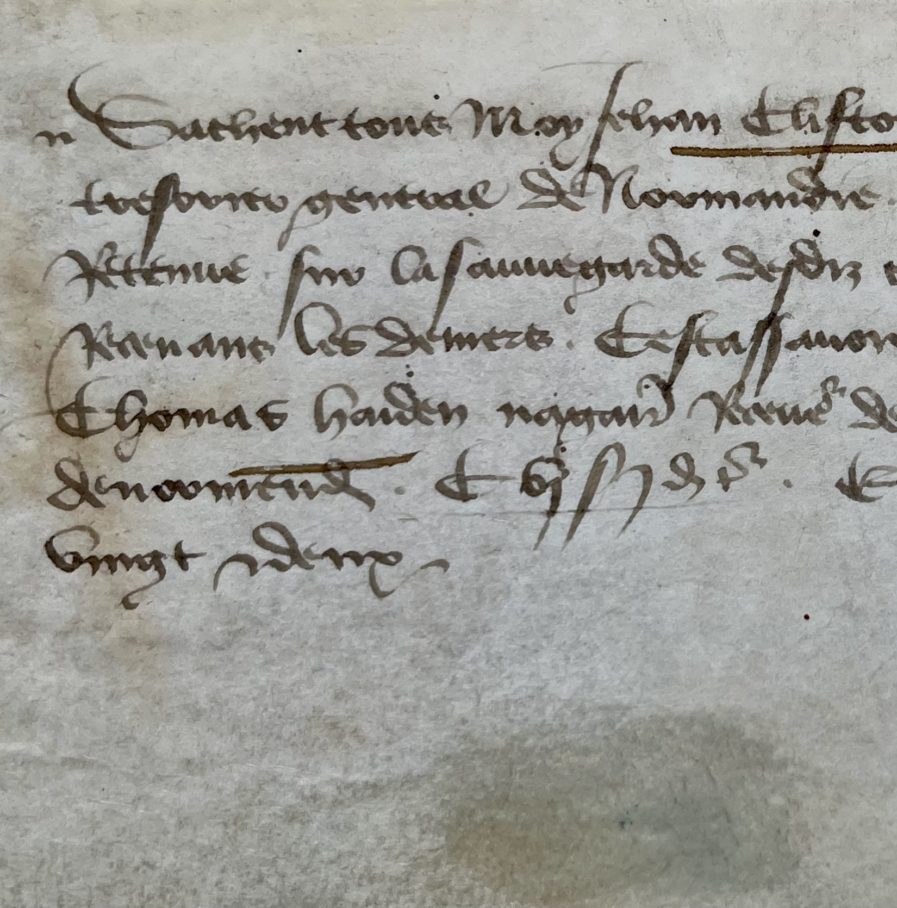 Sachent tous Moy Jehan Clifto
tresorier general de Normandie
Retenue sur la sauuegarde desdiz
Receuant les deniers. Cestassauoir
Thomas haiden nagair Receue de
denormend. C vj s j d t.
vingt deux